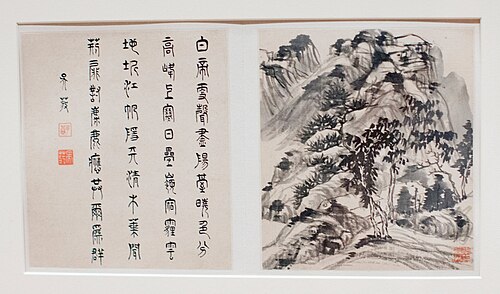 白帝更聲盡陽臺曉色分
高峰上寒日疊嶺宿霾雲
地坼江帆隱天清木葉聞
荊扉對麋鹿應共爾為群